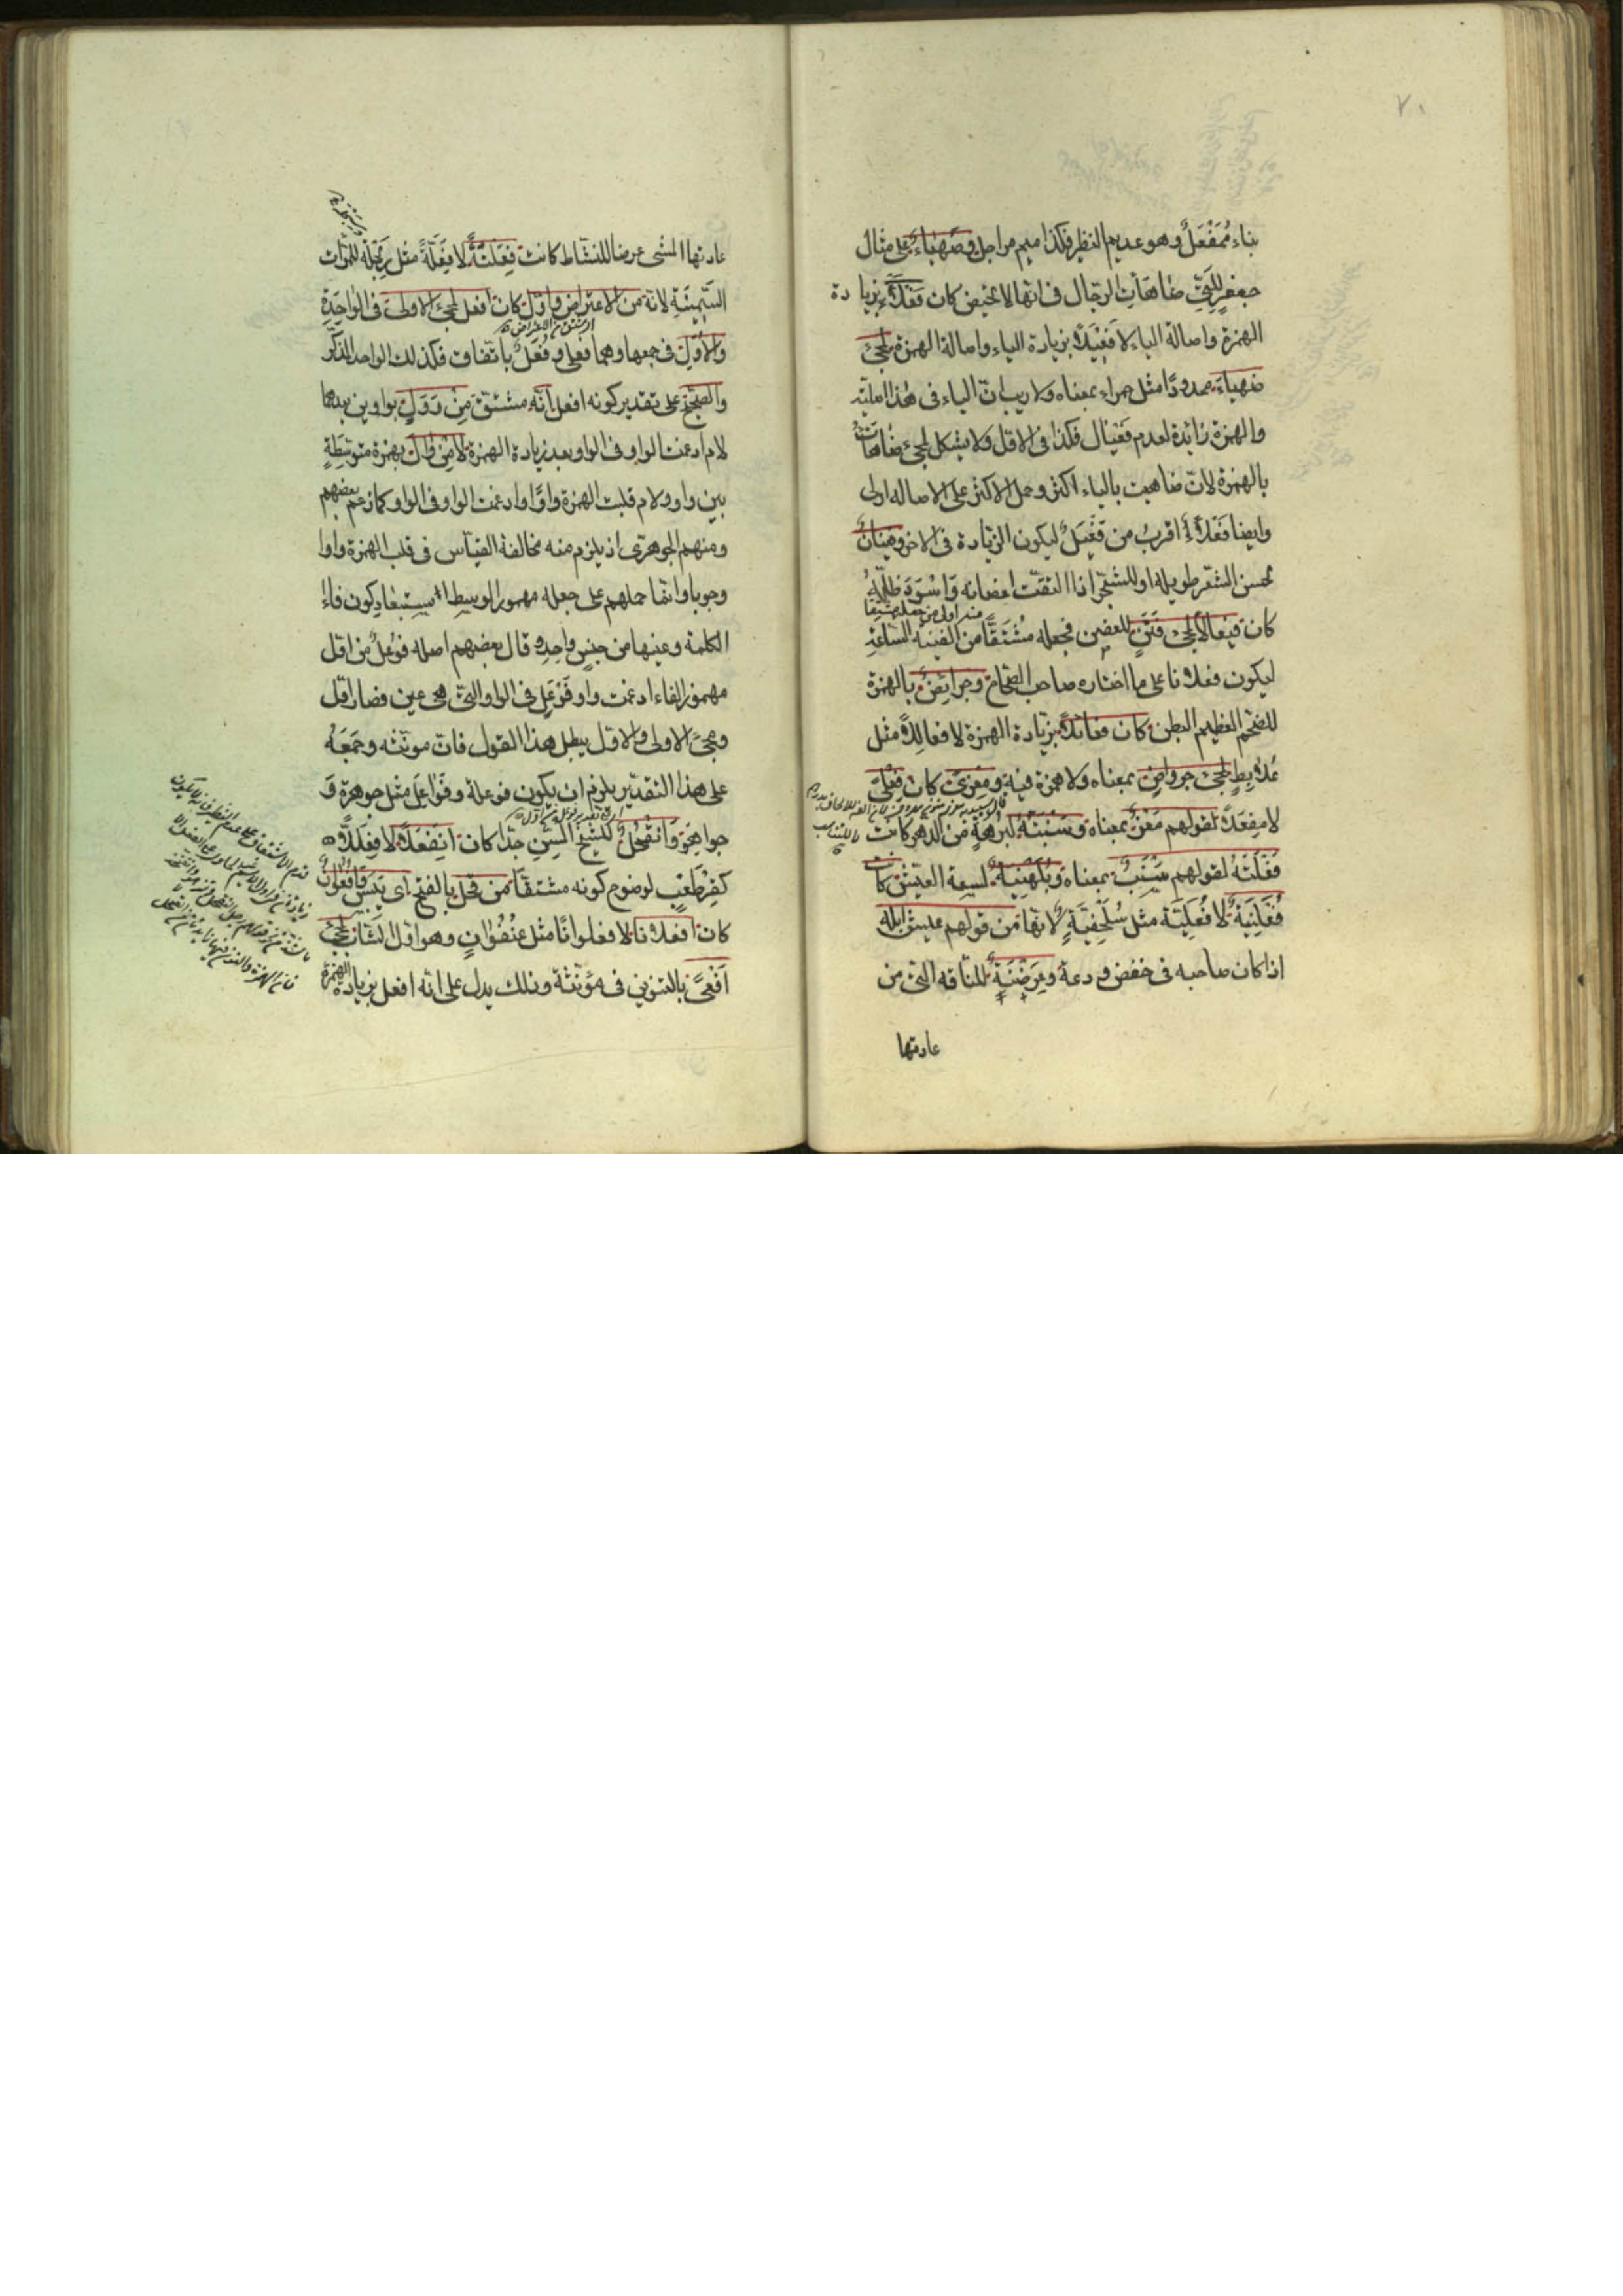 ٧٠
بناء مُمَفْعَلٌ وهو عديم النظير فكذا ميم مراجل وضَهْيَاءُ على مثال
جعفرٍ للتي ضاهأت الرجال فى انها لا تحيض كان فَعْلَأً بزيادة
الهمزة واصالة الياء لا فَعْيَلًا بزيادة الياء واصالة الهمزة لمجئ
ضهياءَ ممدودًا مثل حمراء بمعناه ولا ريب ان الياء فى هذا اصلية
والهمزة زائدة لعدم فَعْيَال فكذا فى الاول ولا يشكل لمجئ ضاهأت
بالهمزة لان ضاهيت بالياء اكثر وحمل الاكثر على الاصاله اولى
وايضا فَعْلَأٌ اقربُ من فَعْيَلٌ ليكون الزيادة فى الاخر وفَيْنَانٌ
لحسن الشعر طويله او للشجر اذا التفّت اغصانه وَاسْوَدَ ظلّه
كان فيعالا لمجئ فَنَنٍ للغصن فجعله مُشْتَقًّا من الفينه الساعة
ليكون فعلانا على ما اختاره صاحب الصحاح وجُرَائِضٌ بالهمزة
للضخم العظيم البطن كان فعائلًا بزيادة الهمزة لا فعاللًا مثل
عُلَابِطٍ لمجئ جرواضٍ بمعناه ولا همزة فيه ومِعْزًى كان فِعْلًى
لا مِفْعَلًا لقولهم مَعْزٌ بمعناه وسَنْبَتَةٌ لبُرهةٍ من الدهر كانت
فَعْلَتَةً لقولهم سَنْبٌ بمعناه وبُلَهْنِيَةٌ لسعة العيش كانت
فُعَلْنِيَةً لا فُعَلِّيَةً مثل سُلَحْفِيَةٍ لانها من قولهم عيش ابله
اذا كان صاحبه فى خفض ودعة وعِرَضْنَةٌ للناقه التى من
عادتها
عادتها المشى عرضا للنشاط كانت فِعَلْنَةً لا فِعَلَّةً مثل رِبَحْلة للمرأة
السَّمِينَةِ لانه من الاعتراض واوّل كان افعل لمجئ الاولى فى الواحِدَةِ
والاُوَلِ فى جمعها وهما فعلى وفُعَلٌ باتفاق فكذلك الواحد المذكر
والصحيح على تقدير كونه افعل انّه مشتقّ مِنْ وَوَلٍ بواوين بعدهما
لام ادغمت الواو فى الواو بعد زيادة الهمزة لا مِنْ وَأَلَ بهمزة متوسّطةٍ
بين واو ولام قلبت الهمزة واوًا وادغمت الواو فى الواو كما زعم بعضهم
ومنهم الجوهرى اذ يلزم منه مخالفة القياس فى قلب الهمزة واوا
وجوبا وانما حملهم على جعله مهموز الوسط استبعاد كون فاء
الكلمة وعينها من جنسٍ واحدٍ وقال بعضهم اصله فوْعَلٌ من اول
مهموز الفاء ادغمت واو فَوْعَلٍ فى الواو التى هى عين فصار اوّل
ومجئ الاولى والاول يبطل هذا القول فان مونثه وجَمَعَهُ
على هذا التقدير يلزم ان يكون فوعلة وفَوَاعِلَ مثل جوهرة وَ
جواهر وَانْقَحْلٌ للشيخ المُسِنِّ جدّا كان اِنْفَعْلًا لا فِعْلَلًّا
كقِرْطَعْبٍ لوضوح كونه مشتقًا من قَحَلَ بالفتح اى يَبِسَ وَافْعُوَانٌ
كان افعلانا لا فعلوانًا مثل عنْفُوَانٍ وهو اول الشباب لمجئ
اَفْعًى بالتنوين فى مؤنثة وذلك يدل على انه افعل بزيادة الهمزة